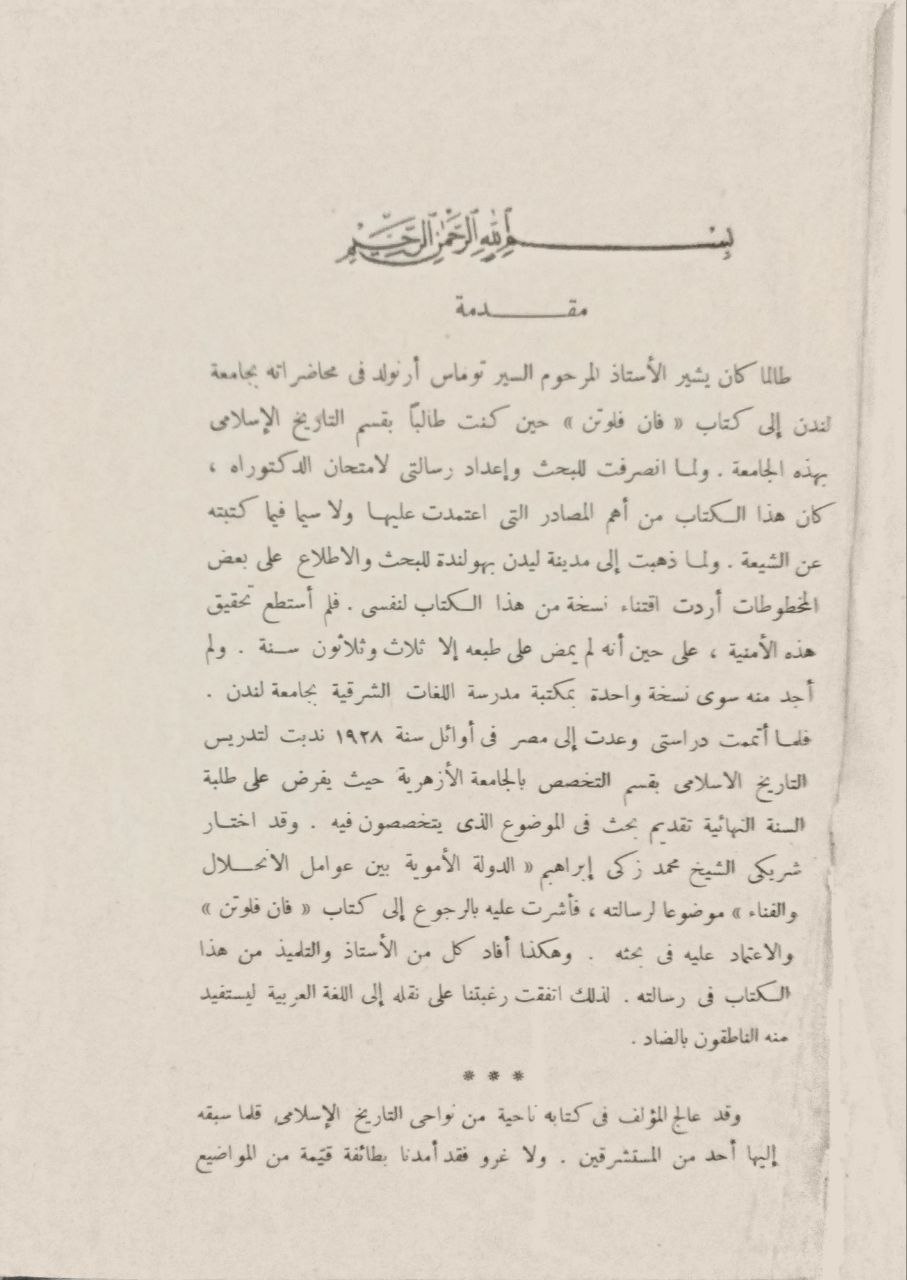 بسم الله الرحمن الرحيم
مقدمة
طالما كان يشير الأستاذ المرحوم السير توماس أرنولد فى محاضراته بجامعة
لندن إلى كتاب « فان فلوتن » حين كنت طالباً بقسم التاريخ الإسلامى
بهذه الجامعة . ولما انصرفت للبحث وإعداد رسالتى لامتحان الدكتوراه ،
كان هذا الكتاب من أهم المصادر التى اعتمدت عليها ولا سيما فيما كتبته
عن الشيعة . ولما ذهبت إلى مدينة ليدن بهولندة للبحث والاطلاع على بعض
المخطوطات أردت اقتناء نسخة من هذا الكتاب لنفسى . فلم أستطع تحقيق
هذه الأمنية ، على حين أنه لم يمض على طبعه إلا ثلاث وثلاثون سنة . ولم
أجد منه سوى نسخة واحدة بمكتبة مدرسة اللغات الشرقية بجامعة لندن .
فلما أتممت دراستى وعدت إلى مصر فى أوائل سنة ١٩٢٨ ندبت لتدريس
التاريخ الاسلامى بقسم التخصص بالجامعة الأزهرية حيث يفرض على طلبة
السنة النهائية تقديم بحث فى الموضوع الذى يتخصصون فيه . وقد اختار
شريكى الشيخ محمد زكى إبراهيم « الدولة الأموية بين عوامل الانحلال
والفناء » موضوعا لرسالته ، فأشرت عليه بالرجوع إلى كتاب « فان فلوتن »
والاعتماد عليه فى بحثه . وهكذا أفاد كل من الأستاذ والتلميذ من هذا
الكتاب فى رسالته . لذلك اتفقت رغبتنا على نقله إلى اللغة العربية ليستفيد
منه الناطقون بالضاد .
* * *
وقد عالج المؤلف فى كتابه ناحية من نواحى التاريخ الإسلامى قلما سبقه
إليها أحد من المستشرقين . ولا غرو فقد أمدنا بطائفة قيّمة من المواضيع